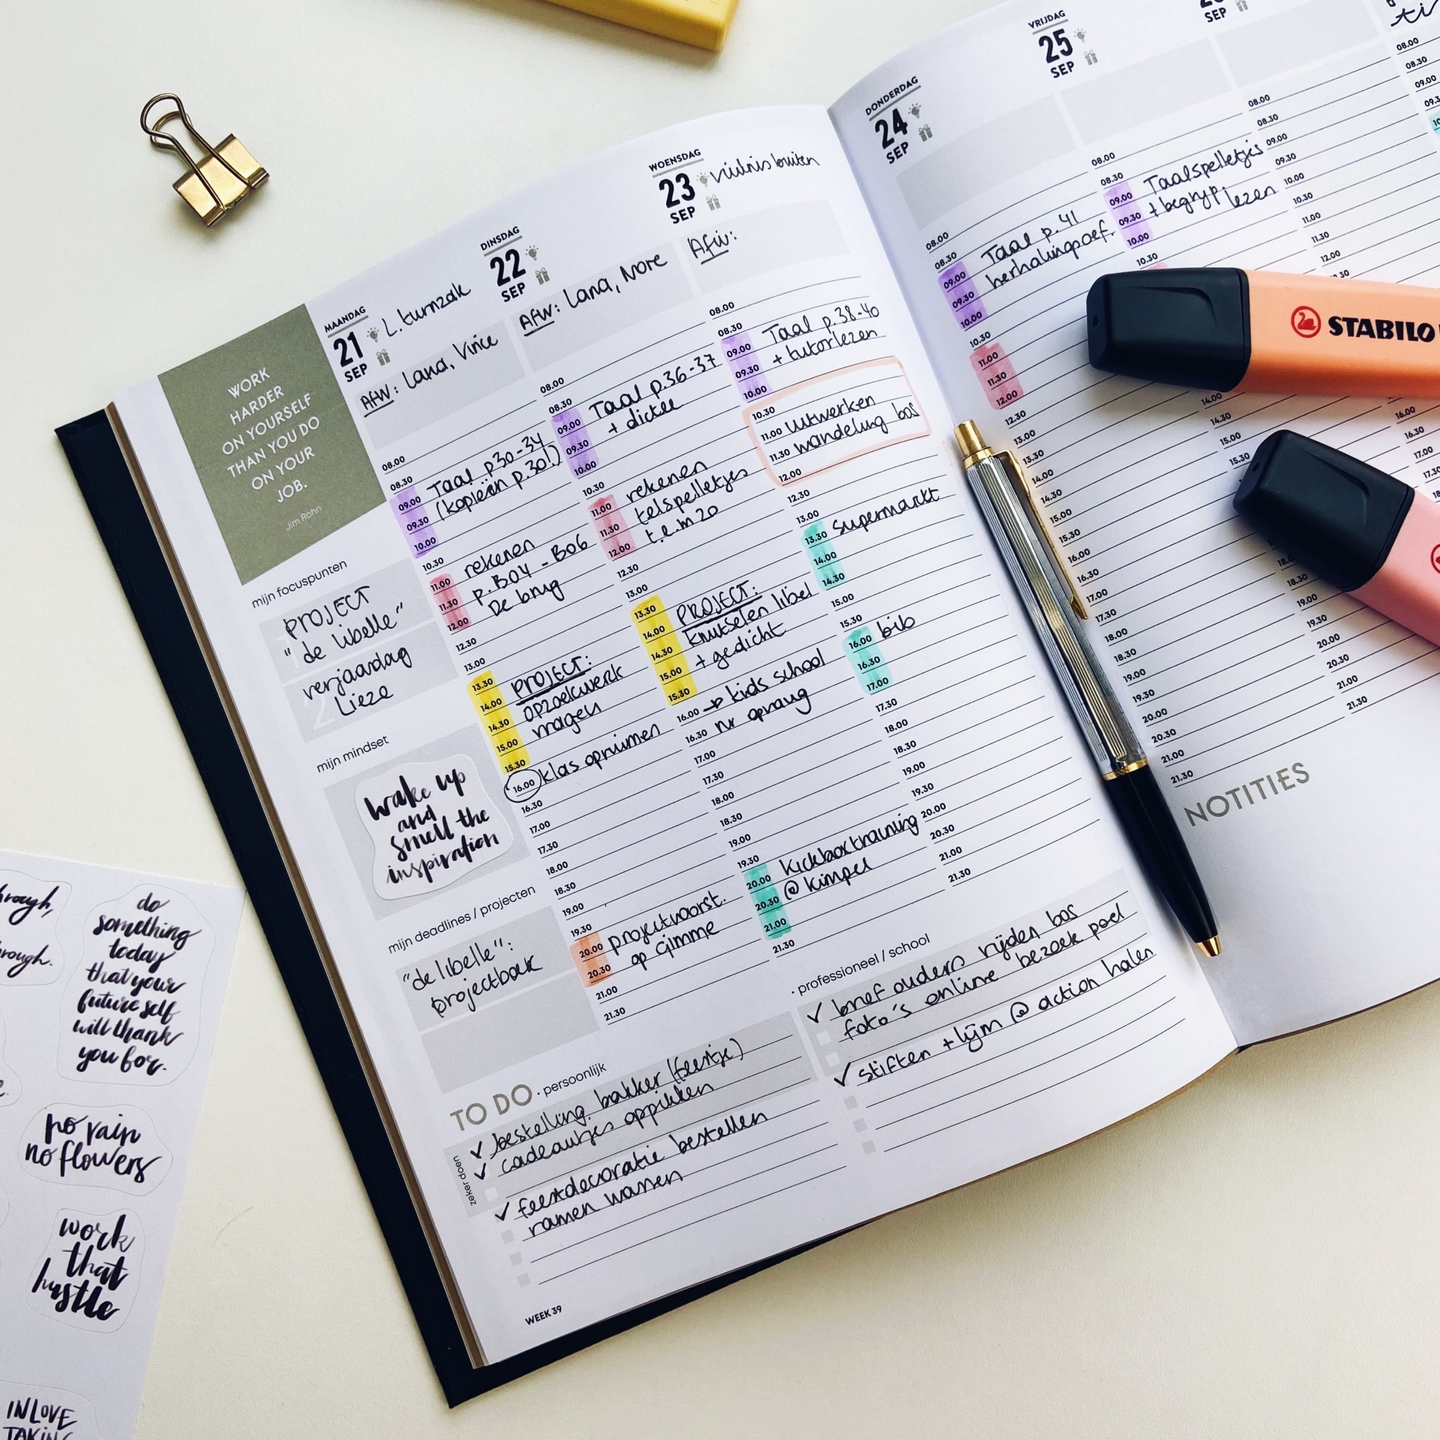 WORK
HARDER
ON YOURSELF
THAN YOU DO
ON YOUR
JOB.
Jim Rohn
mijn focuspunten
PROJECT
"de libelle"
verjaardag
Lieze
mijn mindset
wake up
and
smell the
inspiration
mijn deadlines / projecten
"de libelle":
projectboek
MAANDAG
21
SEP
L. turnzak
AFW: Lana, Vince
08.00
08.30
09.00
09.30
10.00
10.30
11.00
11.30
12.00
12.30
13.00
13.30
14.00
14.30
15.00
15.30
16.00
16.30
17.00
17.30
18.00
18.30
19.00
19.30
20.00
20.30
21.00
21.30
Taal p30-34
(kopieën p.30!)
rekenen
p. B04 - B06
De brug
PROJECT:
opzoekwerk
vragen
klas opruimen
projectvoorst.
op gimme
DINSDAG
22
SEP
AFW: Lana, Nore
08.00
08.30
09.00
09.30
10.00
10.30
11.00
11.30
12.00
12.30
13.00
13.30
14.00
14.30
15.00
15.30
16.00
16.30
17.00
17.30
18.00
18.30
19.30
20.00
20.30
21.00
21.30
Taal p.36-37
+ dictee
rekenen
telspelletjes
t.e.m 20
PROJECT:
knutselen libel
+ gedicht
→ kids school
nr opvang
kickboxtraining
@ kimpel
WOENSDAG
23
SEP
vuilnis buiten
Afw:
08.00
08.30
09.00
09.30
10.00
10.30
11.00
11.30
12.00
12.30
13.00
13.30
14.00
14.30
15.00
16.00
16.30
17.00
17.30
18.00
18.30
19.30
20.00
20.30
21.00
21.30
Taal p.38-40
+ tutorlezen
uitwerken
wandeling bos
supermarkt
bib
TO DO • persoonlijk
zeker doen
✓ bestelling bakker (feestje)
✓ cadeautjes oppikken
✓ feestdecoratie bestellen
ramen wassen
• professioneel / school
✓ brief ouders rijden bos
foto's online bezoek poel
✓ stiften + lijm @ action halen
WEEK 39
DONDERDAG
24
SEP
08.00
08.30
09.00
09.30
10.00
10.30
11.00
11.30
12.00
12.30
13.00
13.30
14.00
14.30
15.00
15.30
16.00
16.30
17.00
17.30
18.00
18.30
19.00
19.30
20.00
20.30
21.00
21.30
Taal p.41
herhalingsoef.
VRIJDAG
25
SEP
08.00
08.30
09.00
09.30
10.00
10.30
Taalspelletjes
+ begrijp lezen
SEP
08.00
08.30
09.00
09.30
10.00
10.30
11.00
11.30
12.00
NOTITIES
STABILO
do
something
today
that your
future self
will thank
you for.
no rain
no flowers
work
that
hustle
IN LOVE